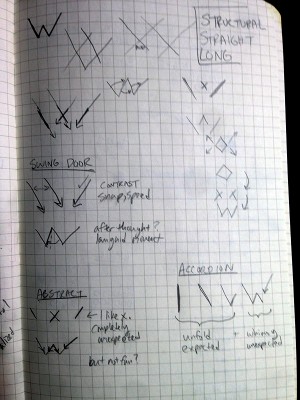 W
STRUCTURAL
STRAIGHT
LONG
SWING DOOR
CONTRAST
snap, spread
after thought?
languid movement
ACCORDION
ABSTRACT
← I like x.
completely
unexpected
but not fan?
unfold
expected
+ whimsy
unexpected